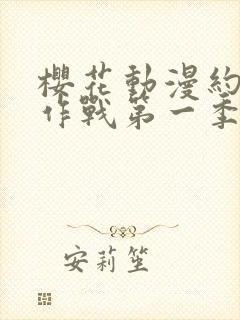 櫻花動漫約
作戰第一季
安莉笙